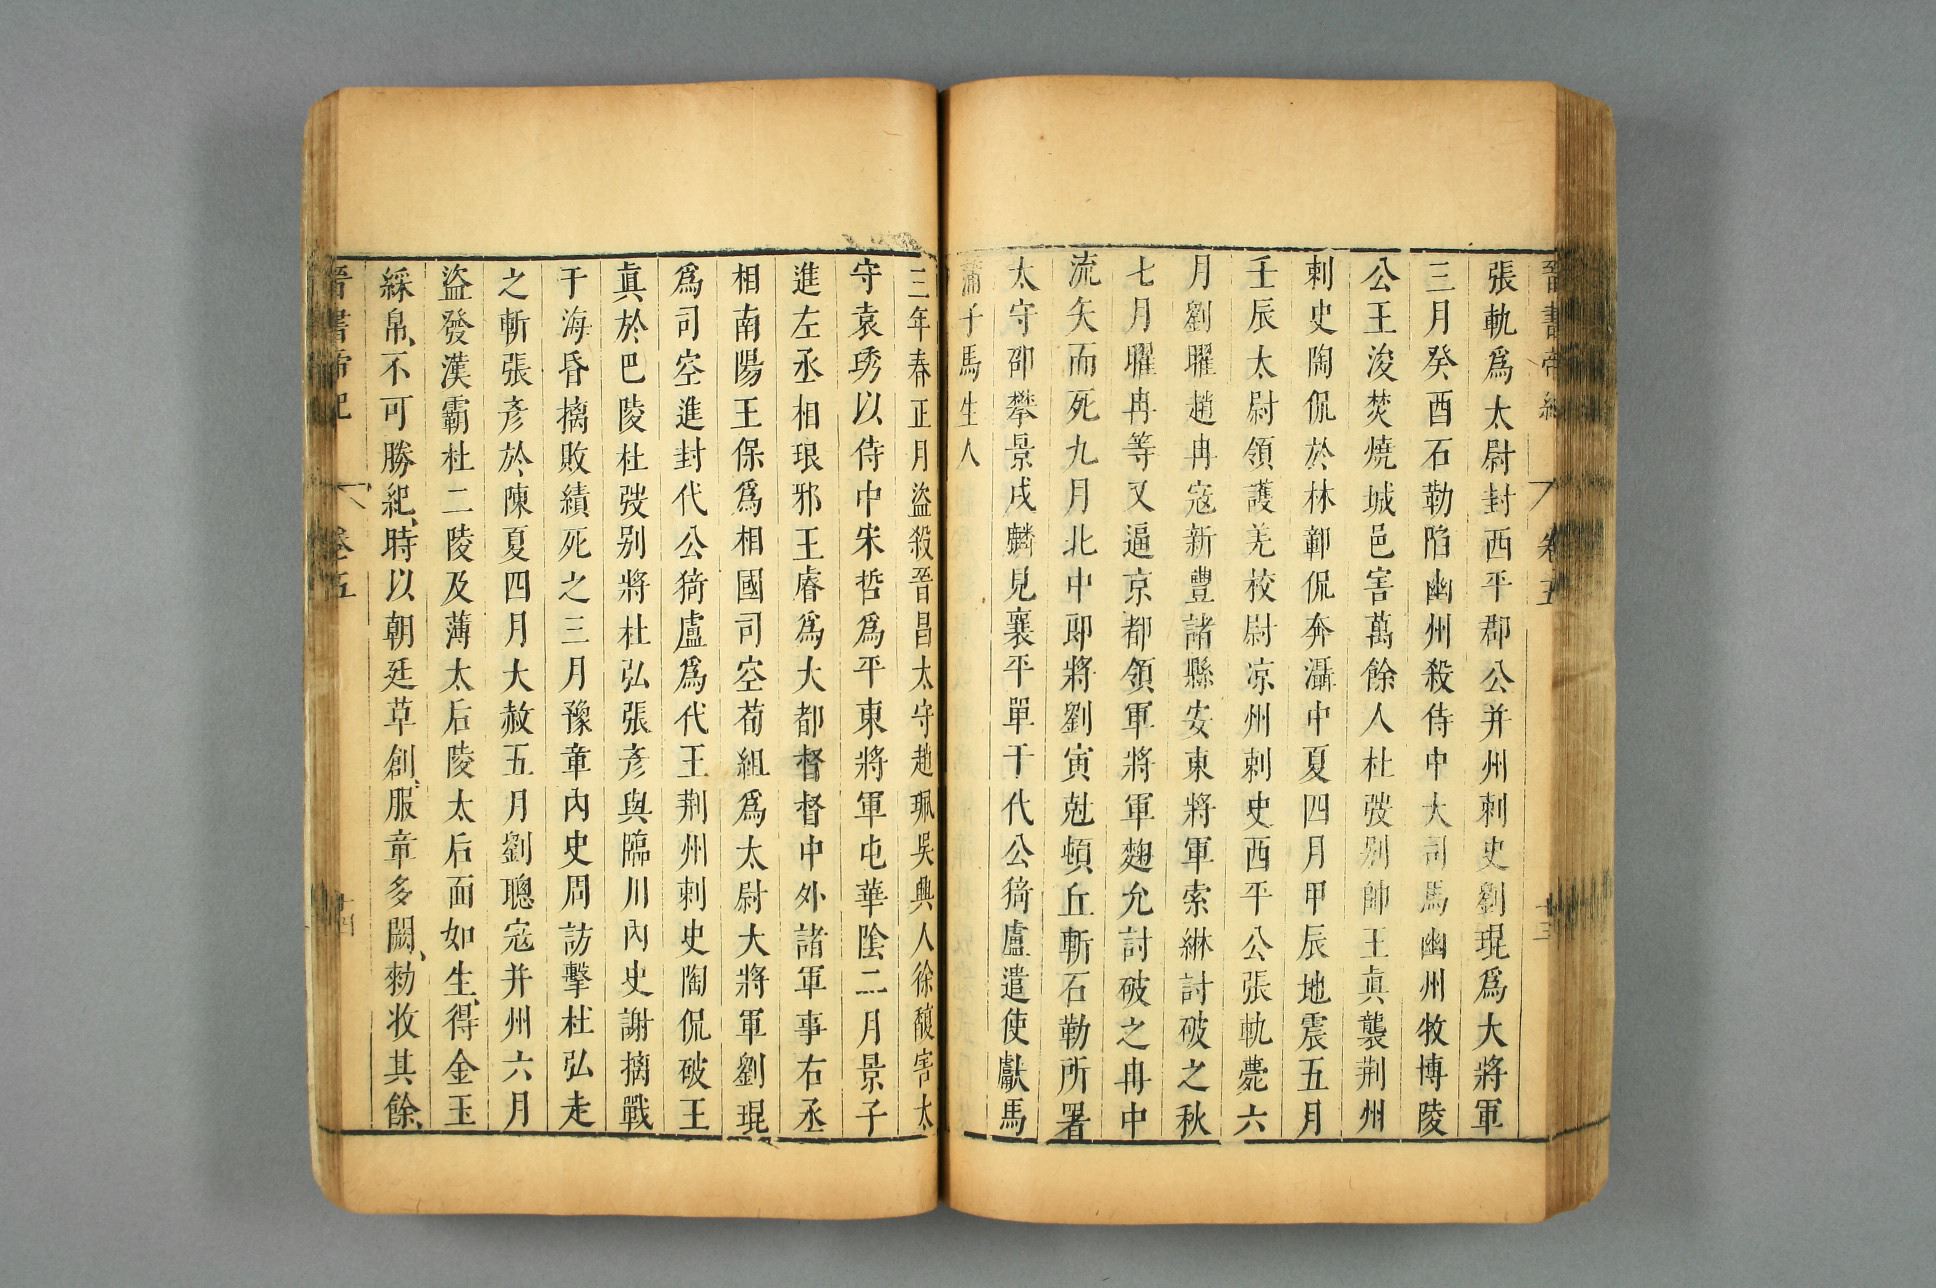 晉書帝紀 卷五 十三
張軌爲太尉封西平郡公并州刺史劉琨爲大將軍
三月癸酉石勒陷幽州殺侍中大司馬幽州牧博陵
公王浚焚燒城邑害萬餘人杜弢别帥王真襲荆州
刺史陶侃於林鄣侃奔灄中夏四月甲辰地震五月
壬辰太尉領護羌校尉凉州刺史西平公張軌薨六
月劉曜趙冉寇新豐諸縣安東將軍索綝討破之秋
七月曜冉等又逼京都領軍將軍麴允討破之冉中
流矢而死九月北中郎將劉寅尅頓丘斬石勒所署
太守邵攀景戌麟見襄平單于代公猗盧遣使獻馬
蒲子馬生人
三年春正月盜殺晉昌太守趙珮吳興人徐馥害太
守袁琇以侍中宋哲爲平東將軍屯華陰二月景子
進左丞相琅邪王睿爲大都督督中外諸軍事右丞
相南陽王保爲相國司空荀組爲太尉大將軍劉琨
爲司空進封代公猗盧爲代王荆州刺史陶侃破王
真於巴陵杜弢别將杜弘張彦與臨川內史謝摛戰
于海昏摛敗績死之三月豫章內史周訪擊杜弘走
之斬張彦於陳夏四月大赦五月劉聰寇并州六月
盜發漢霸杜二陵及薄太后陵太后面如生、得金玉
綵帛、不可勝紀、時以朝廷草創、服章多闕、勑收其餘、
晉書帝紀 卷五 十四